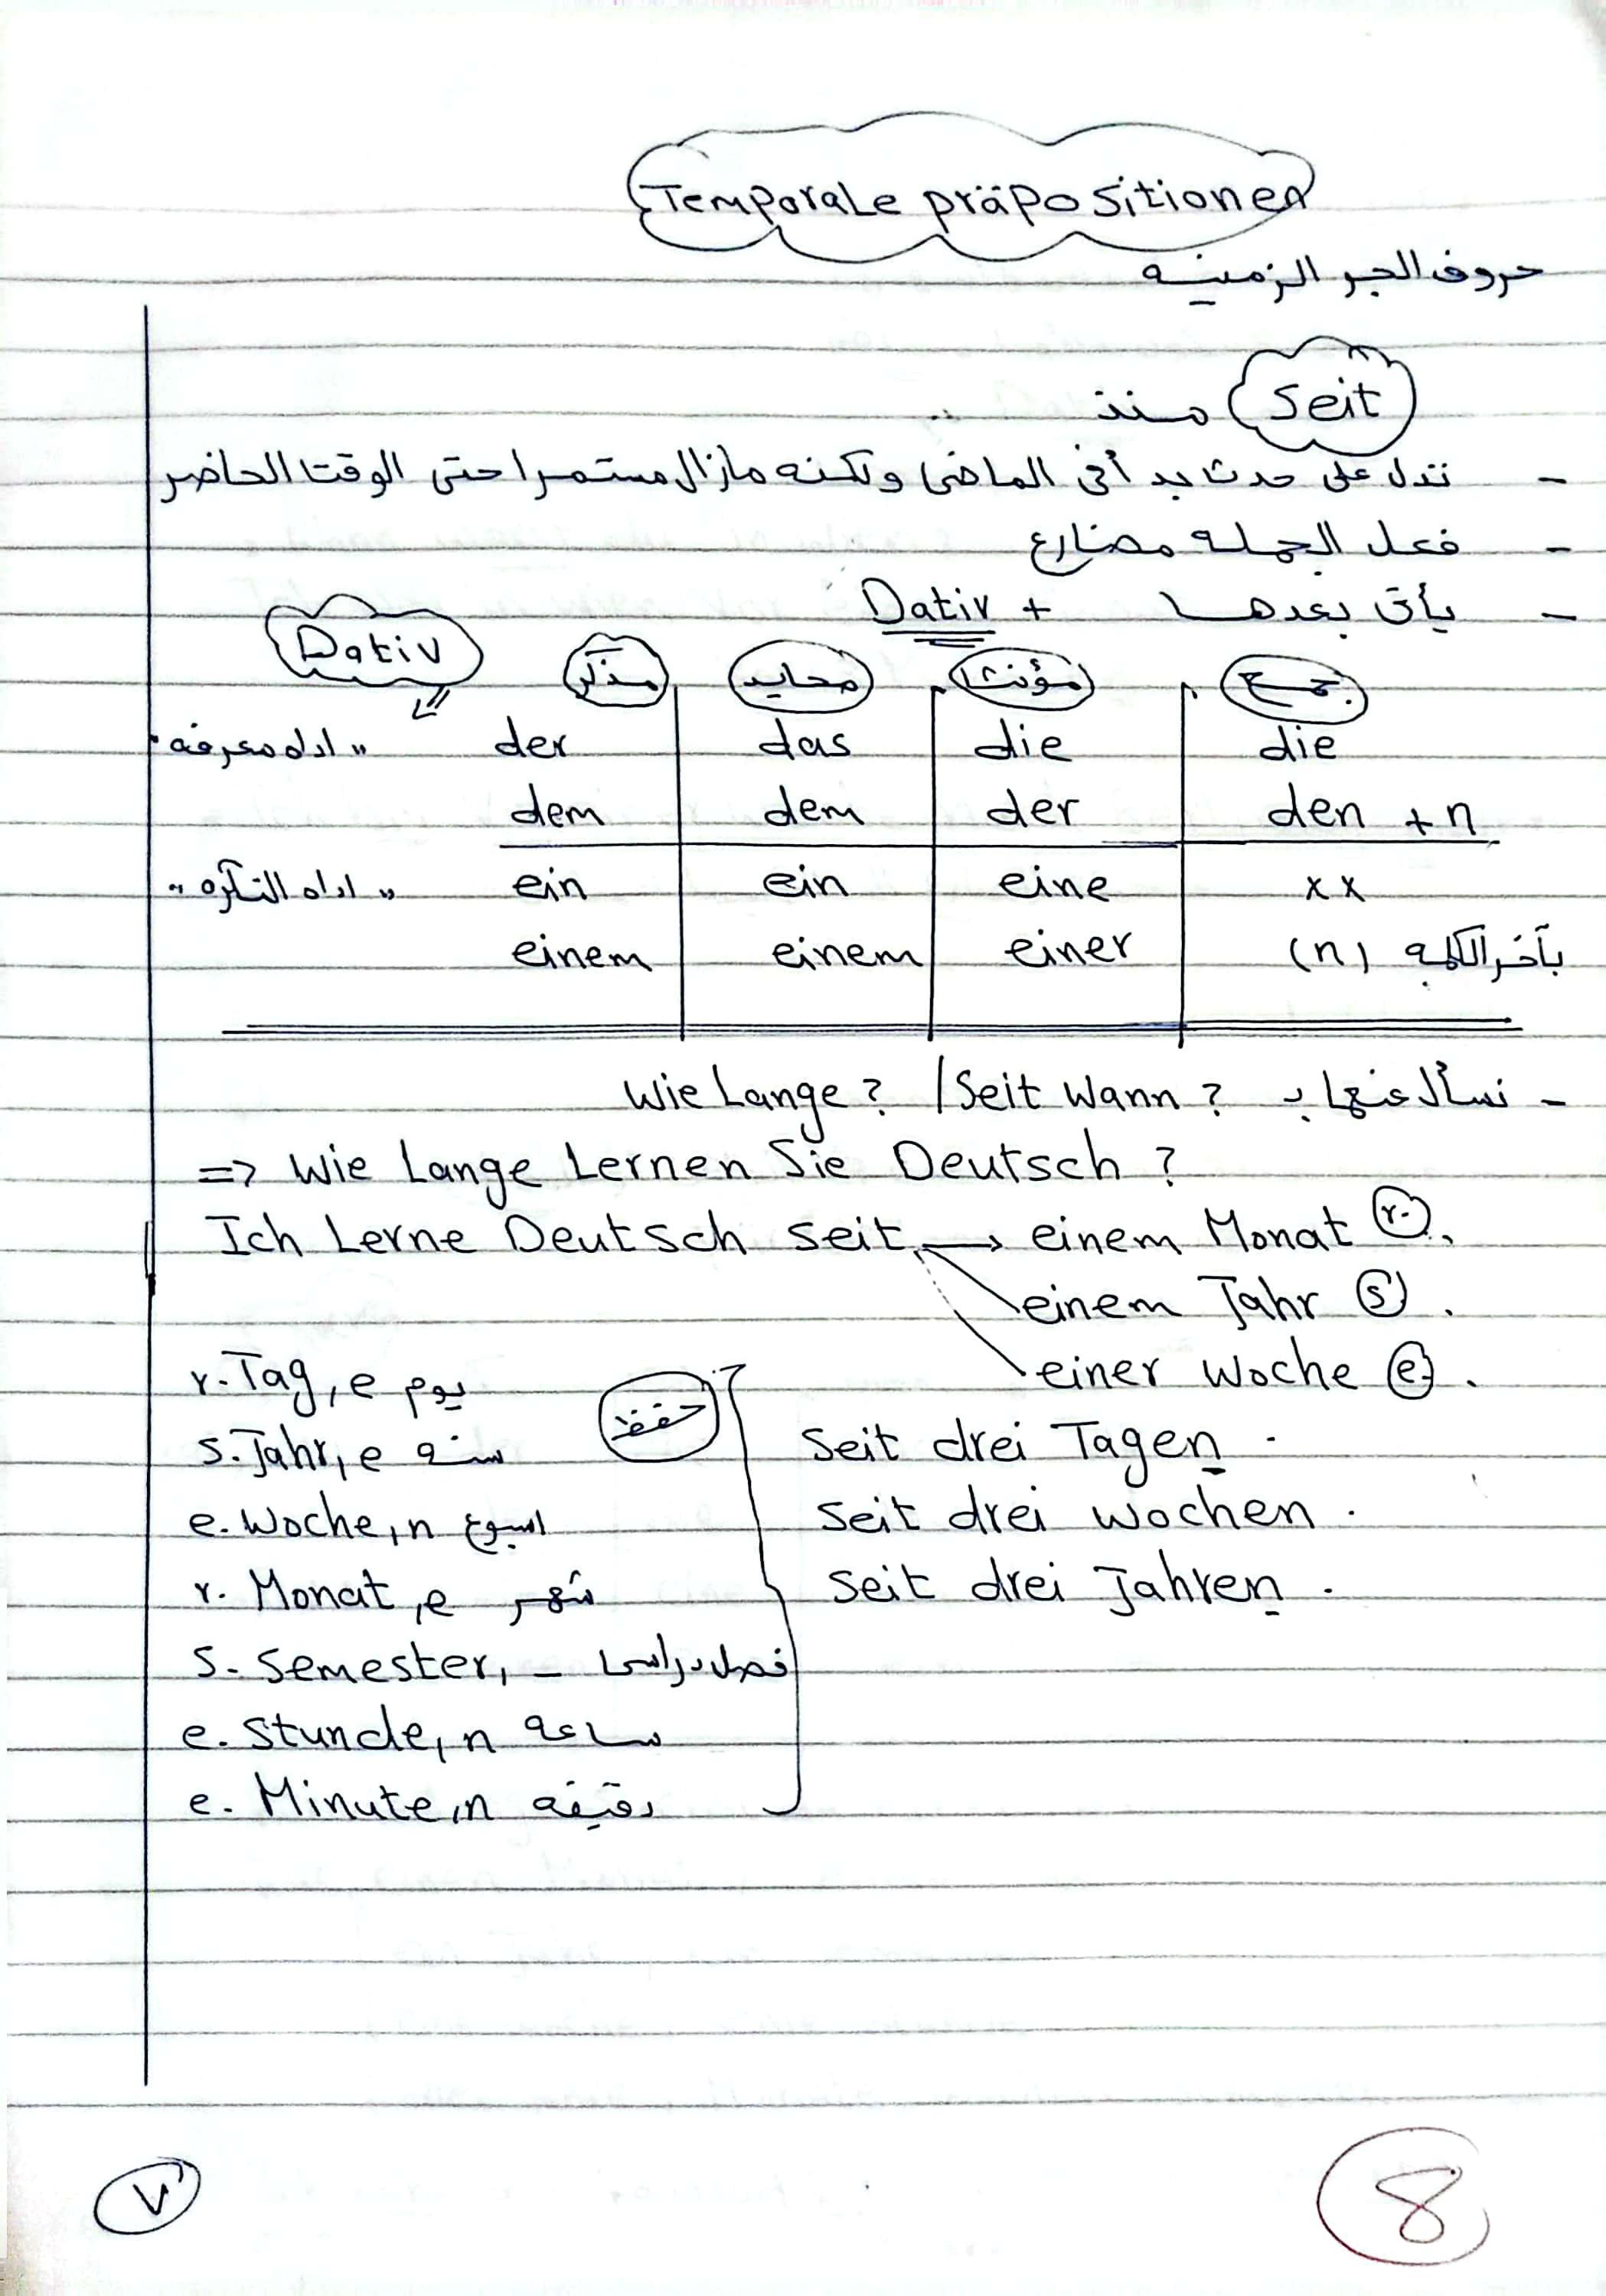 Temporale präpositionen
حروف الجر الزمنيه
Seit منذ
- تدل على حدث بدأ فى الماضى ولكنه مازال مستمرا حتى الوقت الحاضر
- فعل الجمله مضارع
- يأتى بعدها + Dativ
Dativ مذكر محايد مؤنث جمع
"اداه معرفه" der das die die
dem dem der den + n
"اداه النكره" ein ein eine x x
einem einem einer (n) بآخر الكلمه
- نسأل عنها بـ Wie Lange? / Seit Wann?
=> Wie Lange Lernen Sie Deutsch?
Ich Lerne Deutsch seit → einem Monat (r.).
einem Jahr (s).
einer Woche (e).
r. Tag, e يوم
s. Jahr, e سنه
e. Woche, n اسبوع
r. Monat, e شهر
s. Semester, - فصل دراسى
e. Stunde, n ساعه
e. Minute, n دقيقه
حفظ
Seit drei Tagen.
Seit drei Wochen.
Seit drei Jahren.
٧
8